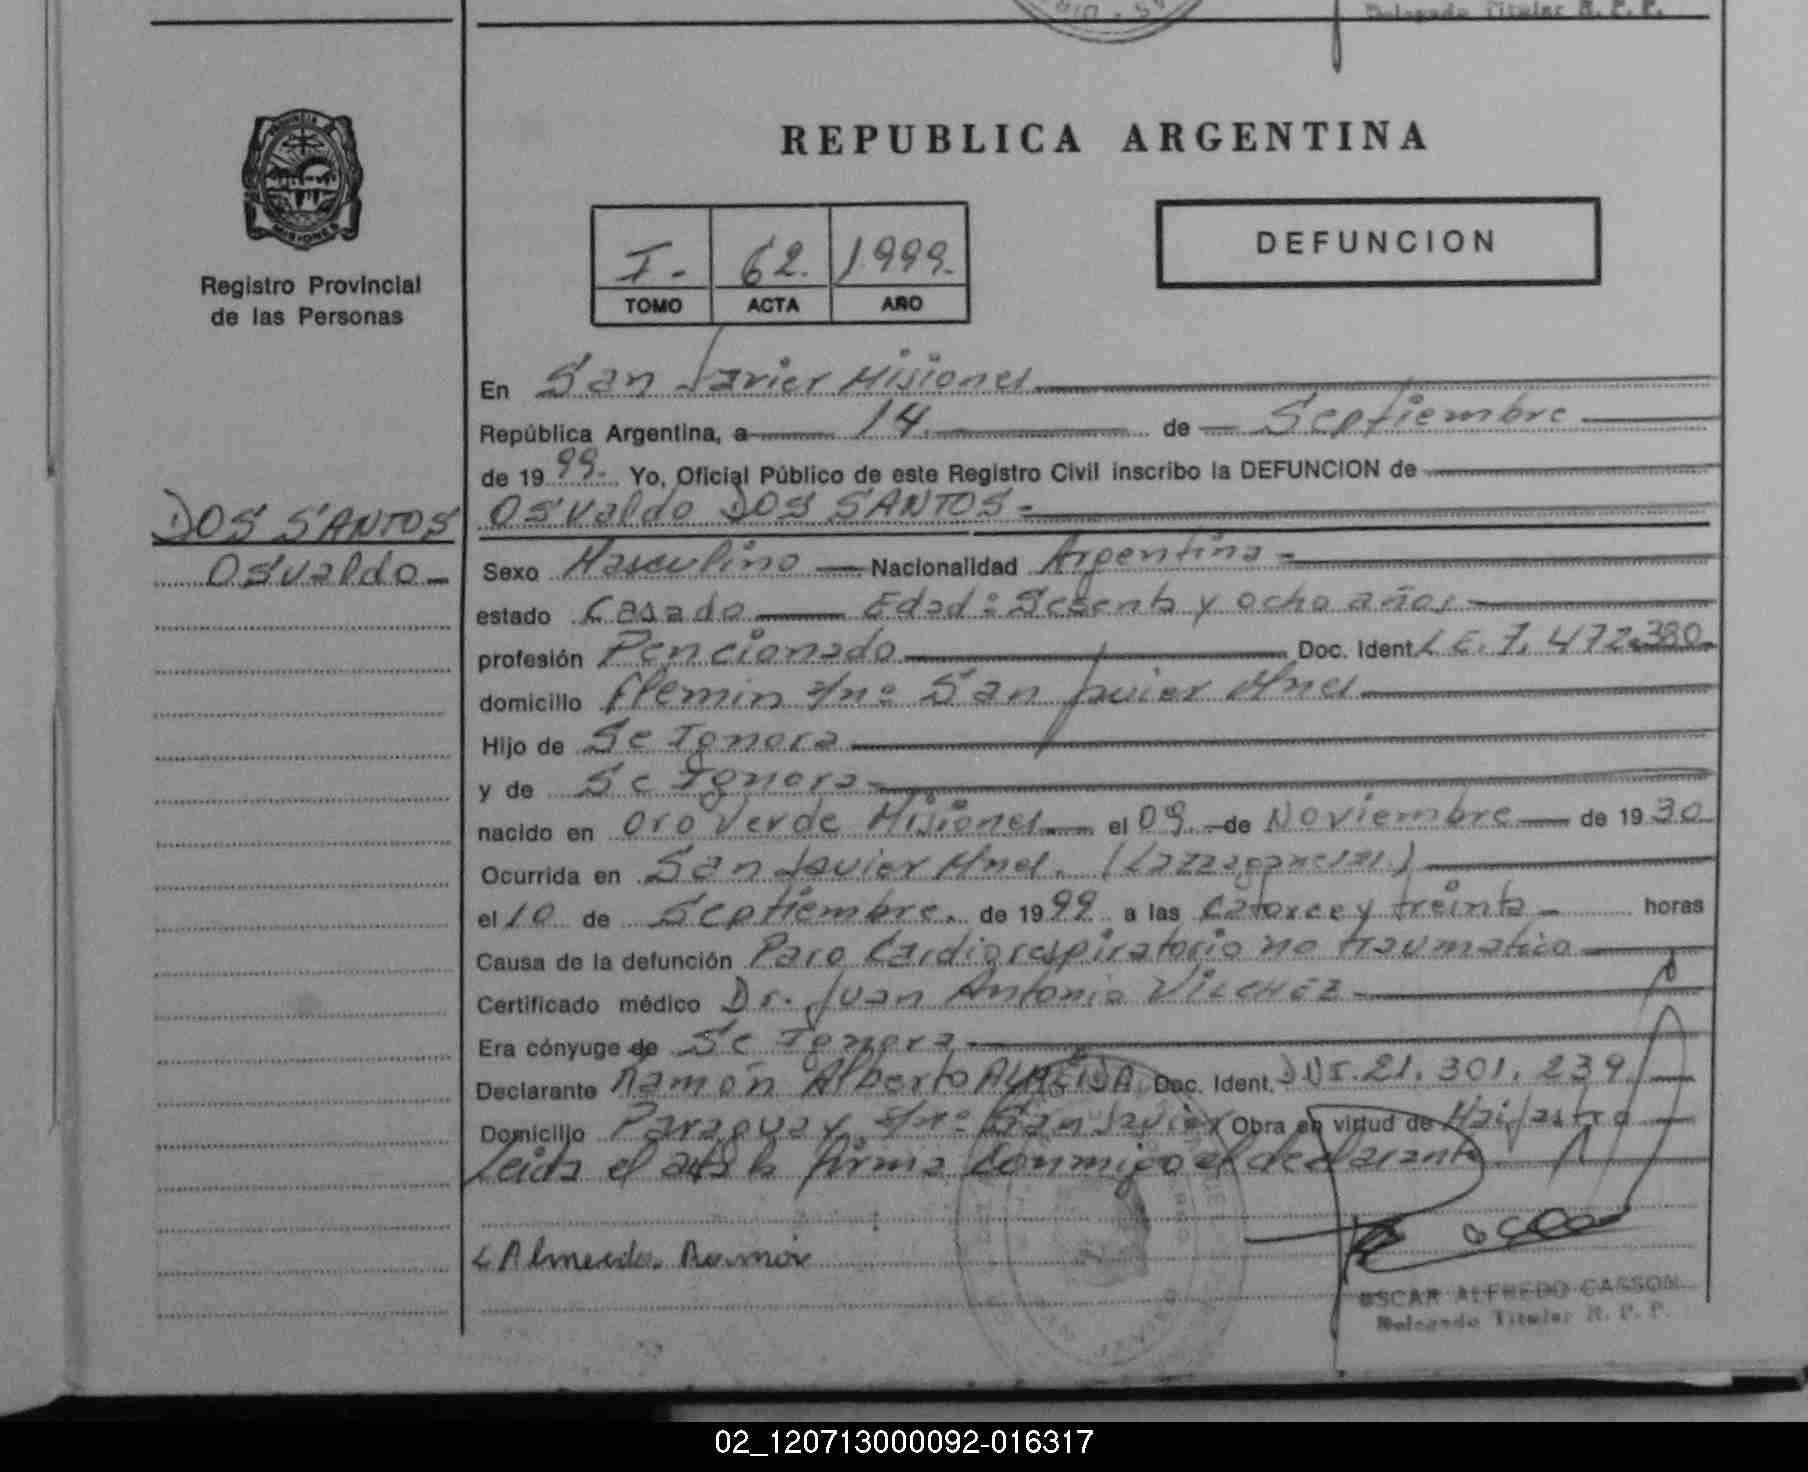 Delegado Titular R. P. P.
PROVINCIA DE
MISIONES
Registro Provincial
de las Personas
REPUBLICA ARGENTINA
I. 62. 1.999.
TOMO ACTA AÑO
DEFUNCION
En San Javier Misiones
República Argentina, a 14 de Septiembre
de 1999. Yo, Oficial Público de este Registro Civil inscribo la DEFUNCION de
DOS SANTOS
Osvaldo
Osvaldo DOS SANTOS
Sexo Masculino Nacionalidad Argentina
estado Casado Edad: Sesenta y ocho años
profesión Pencionado Doc. Ident. L.E. 7.472.380
domicilio Flemin s/nº San Javier Mnes
Hijo de Se Ignora
y de Se Ignora
nacido en Oro Verde Misiones el 09 de Noviembre de 1930
Ocurrida en San Javier Mnes.
el 10 de Septiembre de 1999 a las Catorce y treinta horas
Causa de la defunción Paro Cardiorespiratorio no traumatico
Certificado médico Dr. Juan Antonio VILCHEZ
Era cónyuge de Se Ignora
Declarante Ramón Alberto ALMEIDA Doc. Ident. DNI. 21.301.239
Domicilio Paraguay s/nº San Javier Obra en virtud de
Leida el acta la firma conmigo el declarante
Almeida Ramon
OSCAR ALFREDO CASSON
Delegado Titular R. P. P.
02_120713000092-016317